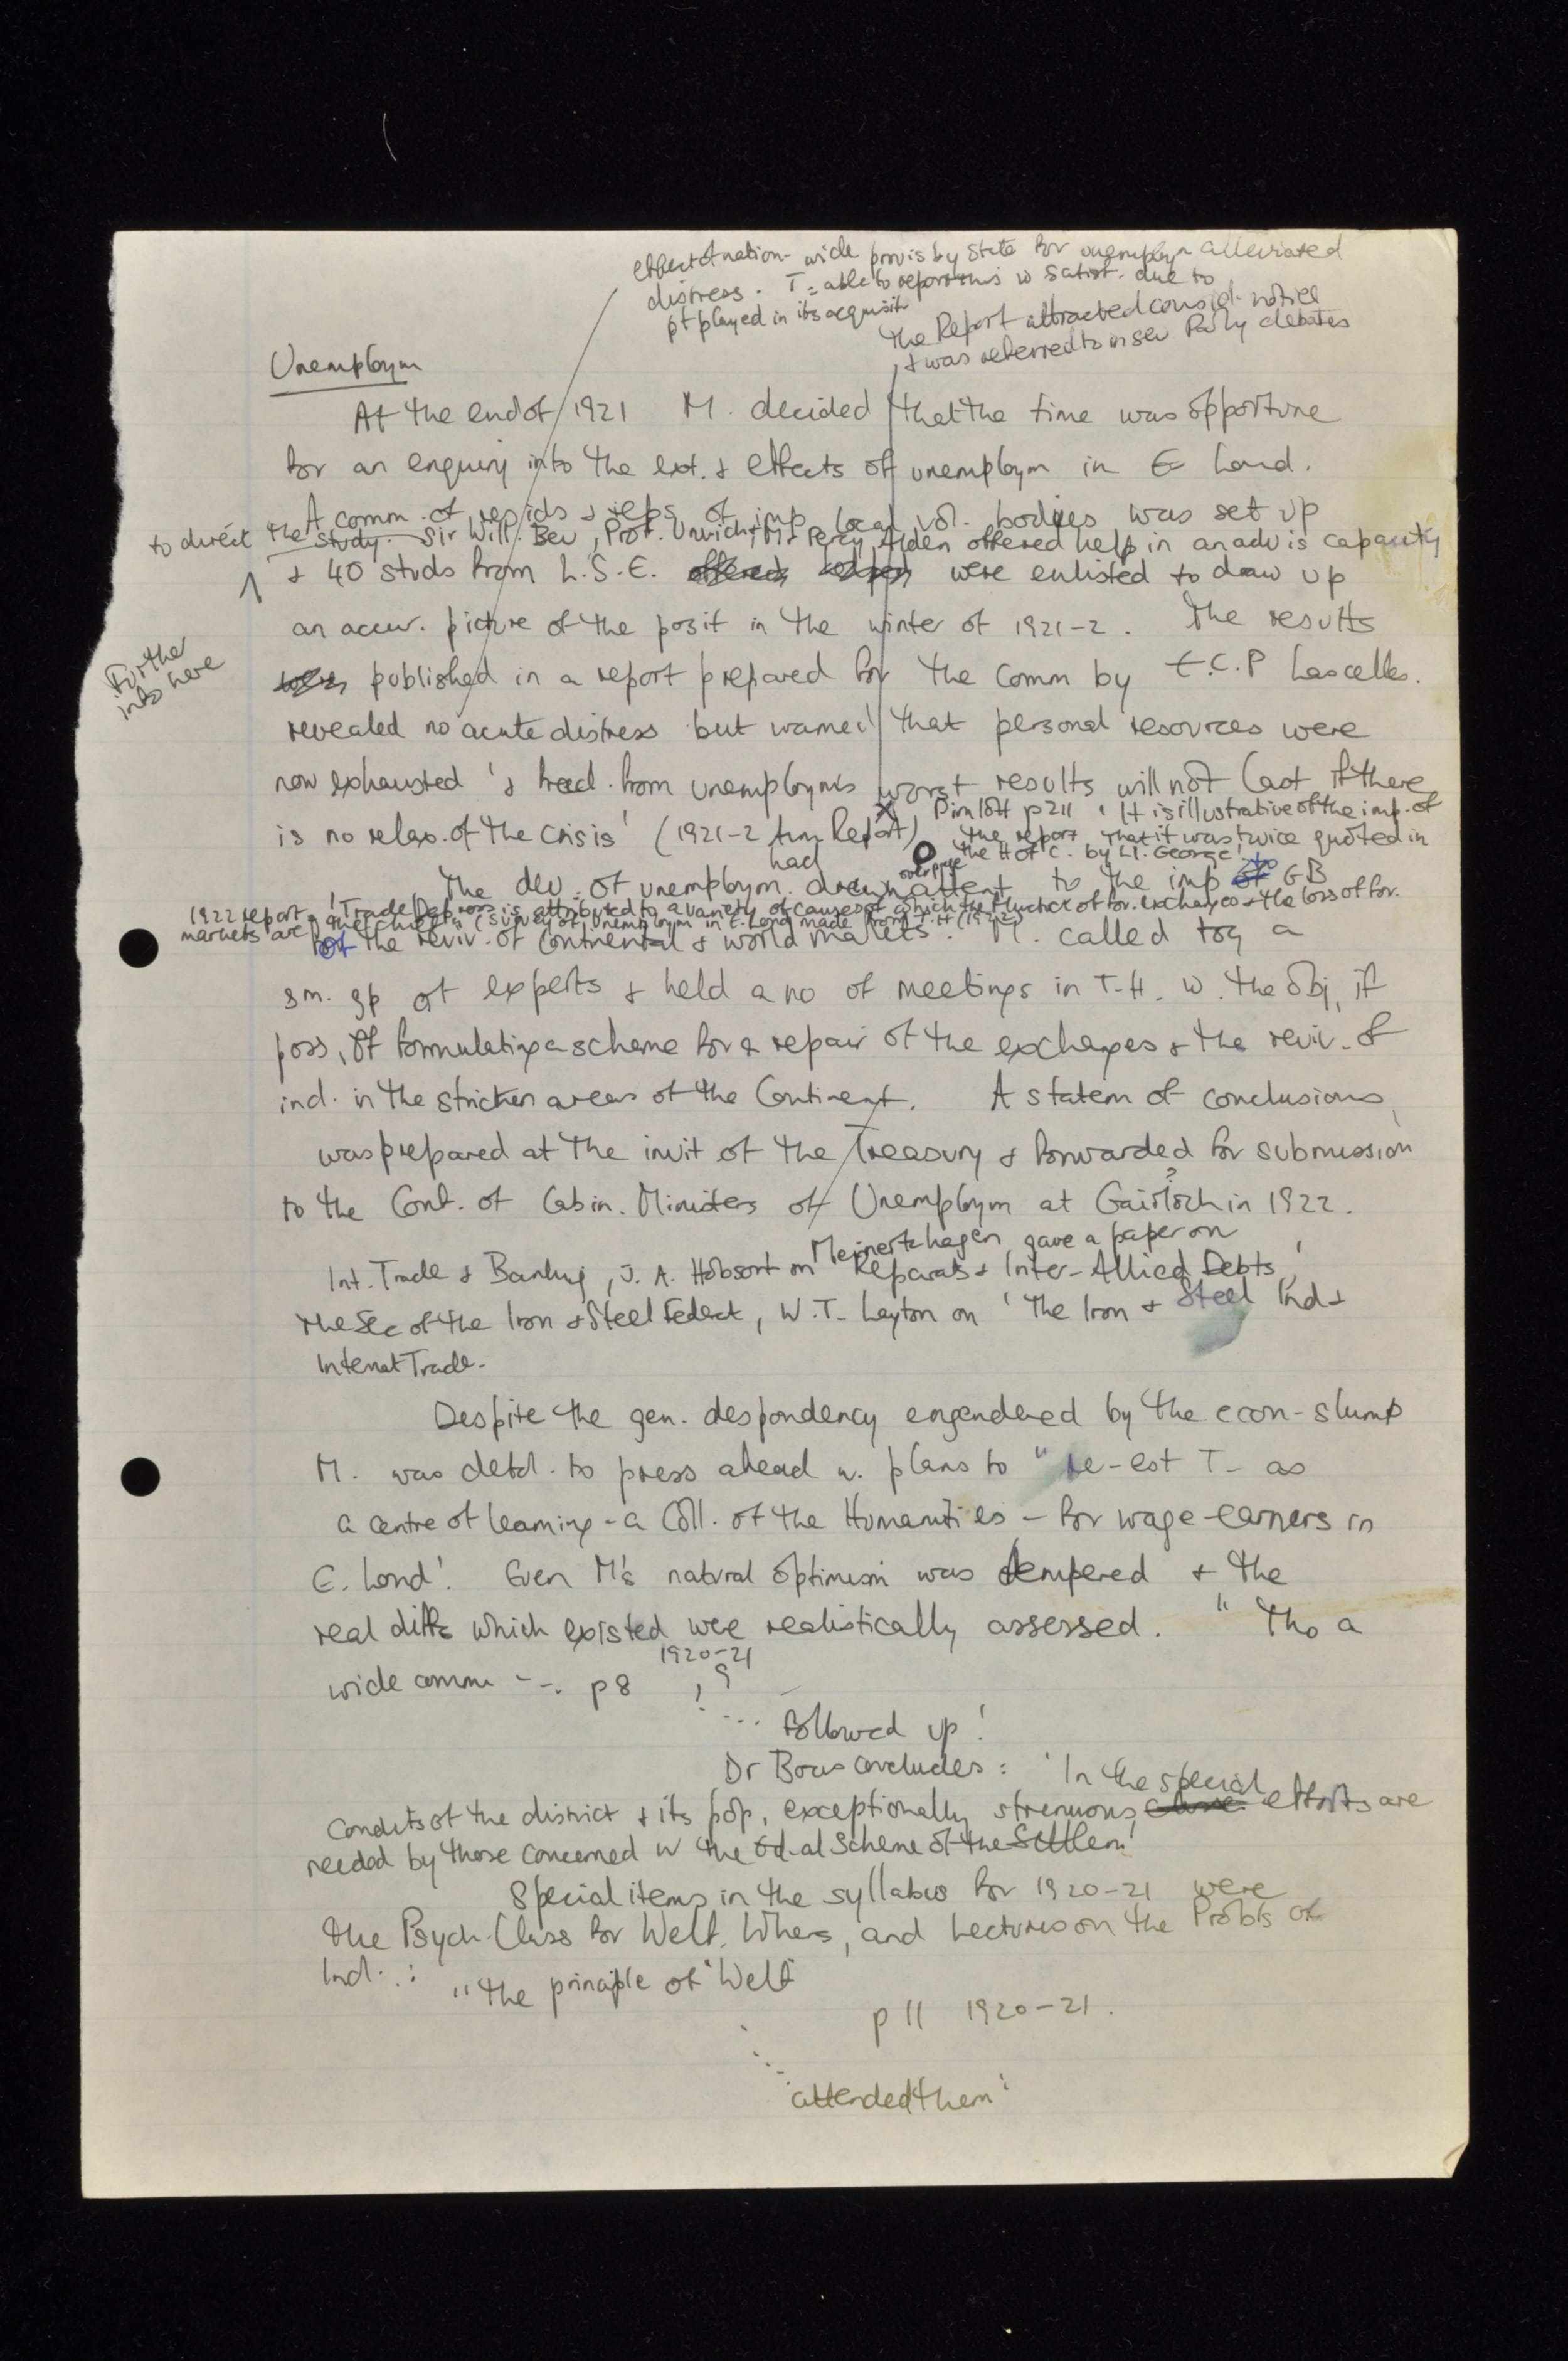 effect of nation-wide provis by State for unemploym alleviated
distress. T = able to report this w satisf. due to
pt played in its acquisit
The Report attracted consid. notice
& was referred to in sev Parly debates
Unemploym
At the end of 1921 M. decided that the time was opportune
for an enquiry into the ext. & effects of unemploym in E Lond.
A comm. of resids & reps of imp local vol. bodies was set up
to direct the study. Sir Will. Bev, Prof. Unwich, Mr Percy Alden offered help in an advis capacity
& 40 studs from L.S.E. were enlisted to draw up
an accur. picture of the posit in the winter of 1921-2. The results
Further
info here
published in a report prepared for the Comm by E.C.P Lascelles.
revealed no acute distress but warned that personal resources were
now exhausted '& freed. from unemployms worst results will not last if there
is no relax. of the crisis' (1921-2 Ann Report)
Pimlott p211 'It is illustrative of the imp. of
the report that it was twice quoted in
the H of C. by Ll. George'
The dev. of unemploym. had drawn attent to the imp to GB
1922 report 'Trade Depress is attributed to a variety of causes of which the fluct of for. exchanges & the loss of for.
markets are the chief' (Survey of Unemploym in E. Lond made from T.H (1922)
of the reviv. of Continental & world markets. M. called tog a
sm. gp of experts & held a no of meetings in T.H. w. the obj, if
poss, of formulating a scheme for a repair of the exchanges & the reviv. of
ind. in the stricken areas of the Continent. A statem of conclusions
was prepared at the invit of the Treasury & forwarded for submission
to the Conf. of Cabin. Ministers of Unemploym at Gairloch? in 1922.
Meinertzhagen gave a paper on
Int. Trade & Banking, J. A. Hobson on 'Reparats & Inter-Allied Debts'
The Sec of the Iron & Steel Federat, W.T. Layton on 'The Iron & Steel Ind &
Internat Trade.
Despite the gen. despondency engendered by the econ-slump
M. was detd. to press ahead w. plans to "re-est T- as
a centre of learning - a Coll. of the Humanities - for wage-earners in
E. Lond'. Even M's natural optimism was tempered & the
real diffs which existed were realistically assessed. "Tho a
wide comm --. p8 1920-21
... followed up!
Dr Borus concludes: 'In the special
condits of the district & its pop, exceptionally strenuous efforts are
needed by those concerned w the Ed-al Scheme of the Settlem'
Special items in the syllabus for 1920-21 were
the Psych. Class for Welf. Wkers, and Lectures on the Probls of
Ind.: "the principle of 'Welf
p 11 1920-21.
attended them'